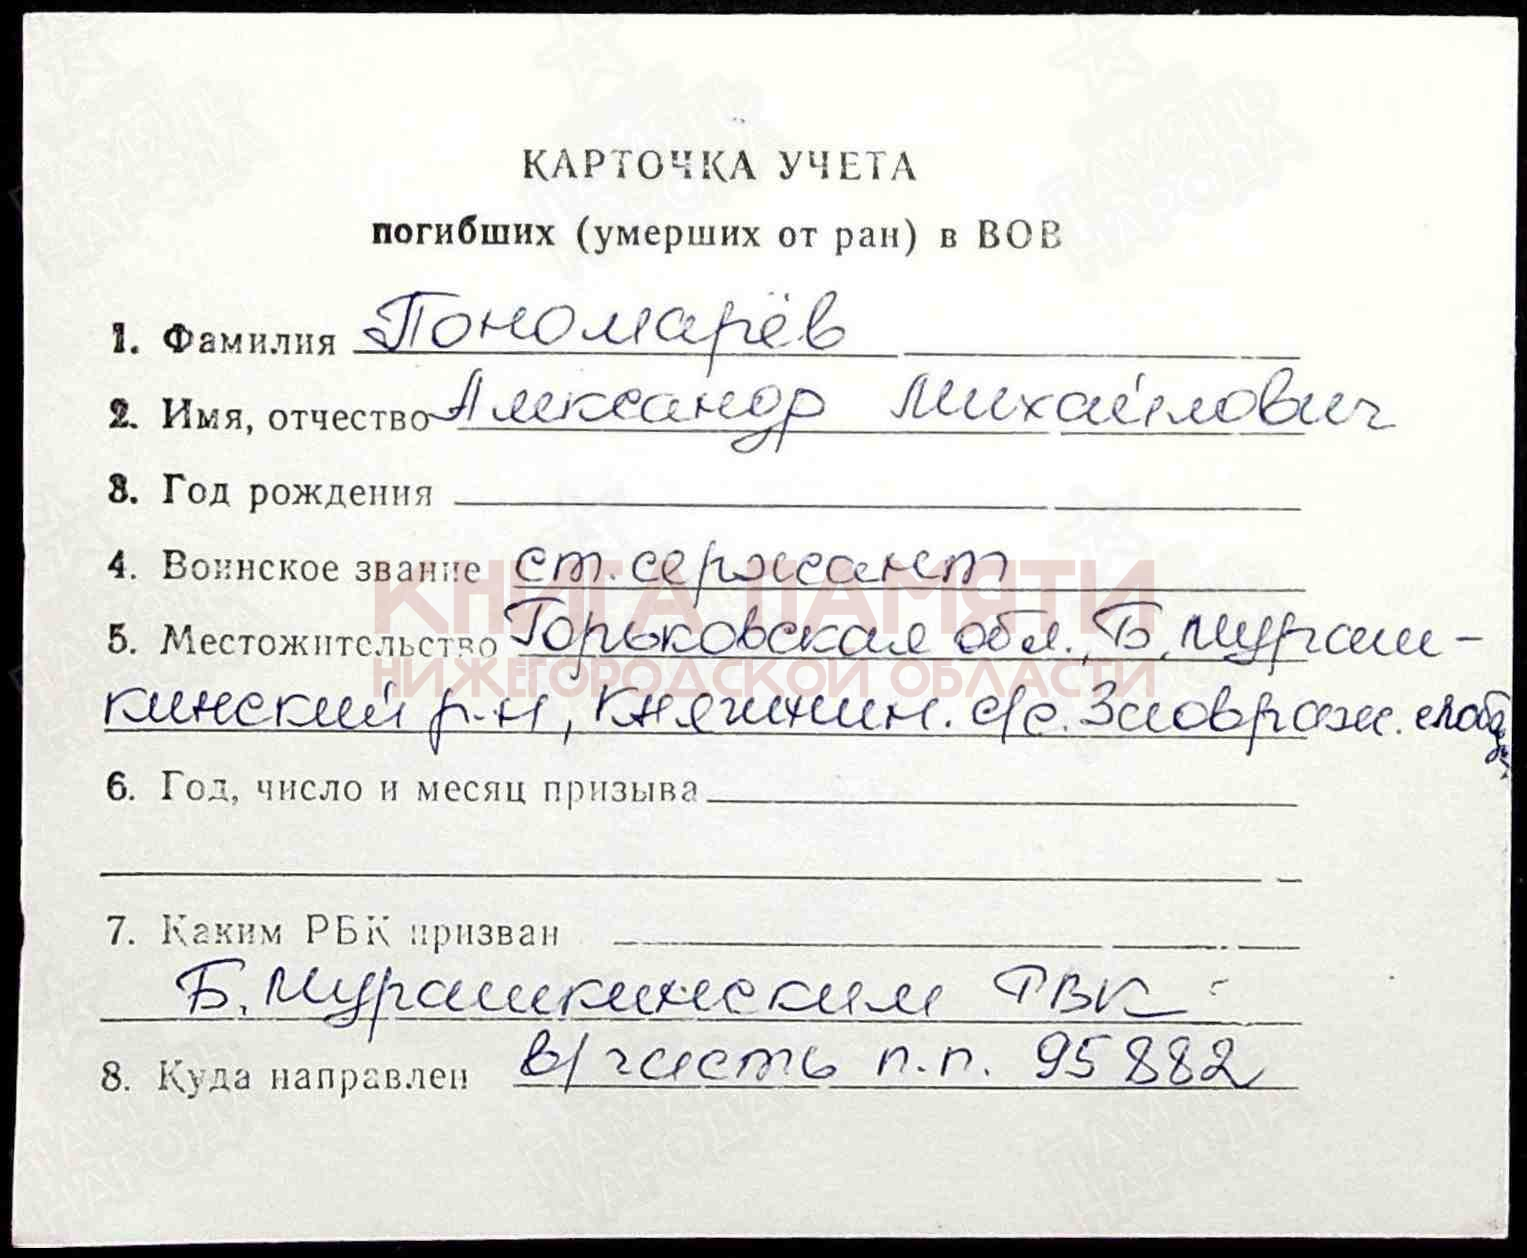 КАРТОЧКА УЧЕТА
погибших (умерших от ран) в ВОВ
1. Фамилия Пономарёв
2. Имя, отчество Александр Михайлович
3. Год рождения
4. Воинское звание ст. сержант
КНИГА ПАМЯТИ
5. Местожительство Горьковская обл., Б. Мураш-
НИЖЕГОРОДСКОЙ ОБЛАСТИ
кинский р-н, Княгинин. с/с. Заовраж. слобода
6. Год, число и месяц призыва
7. Каким РВК призван
Б. Мурашкинским РВК
8. Куда направлен в/часть п.п. 95882